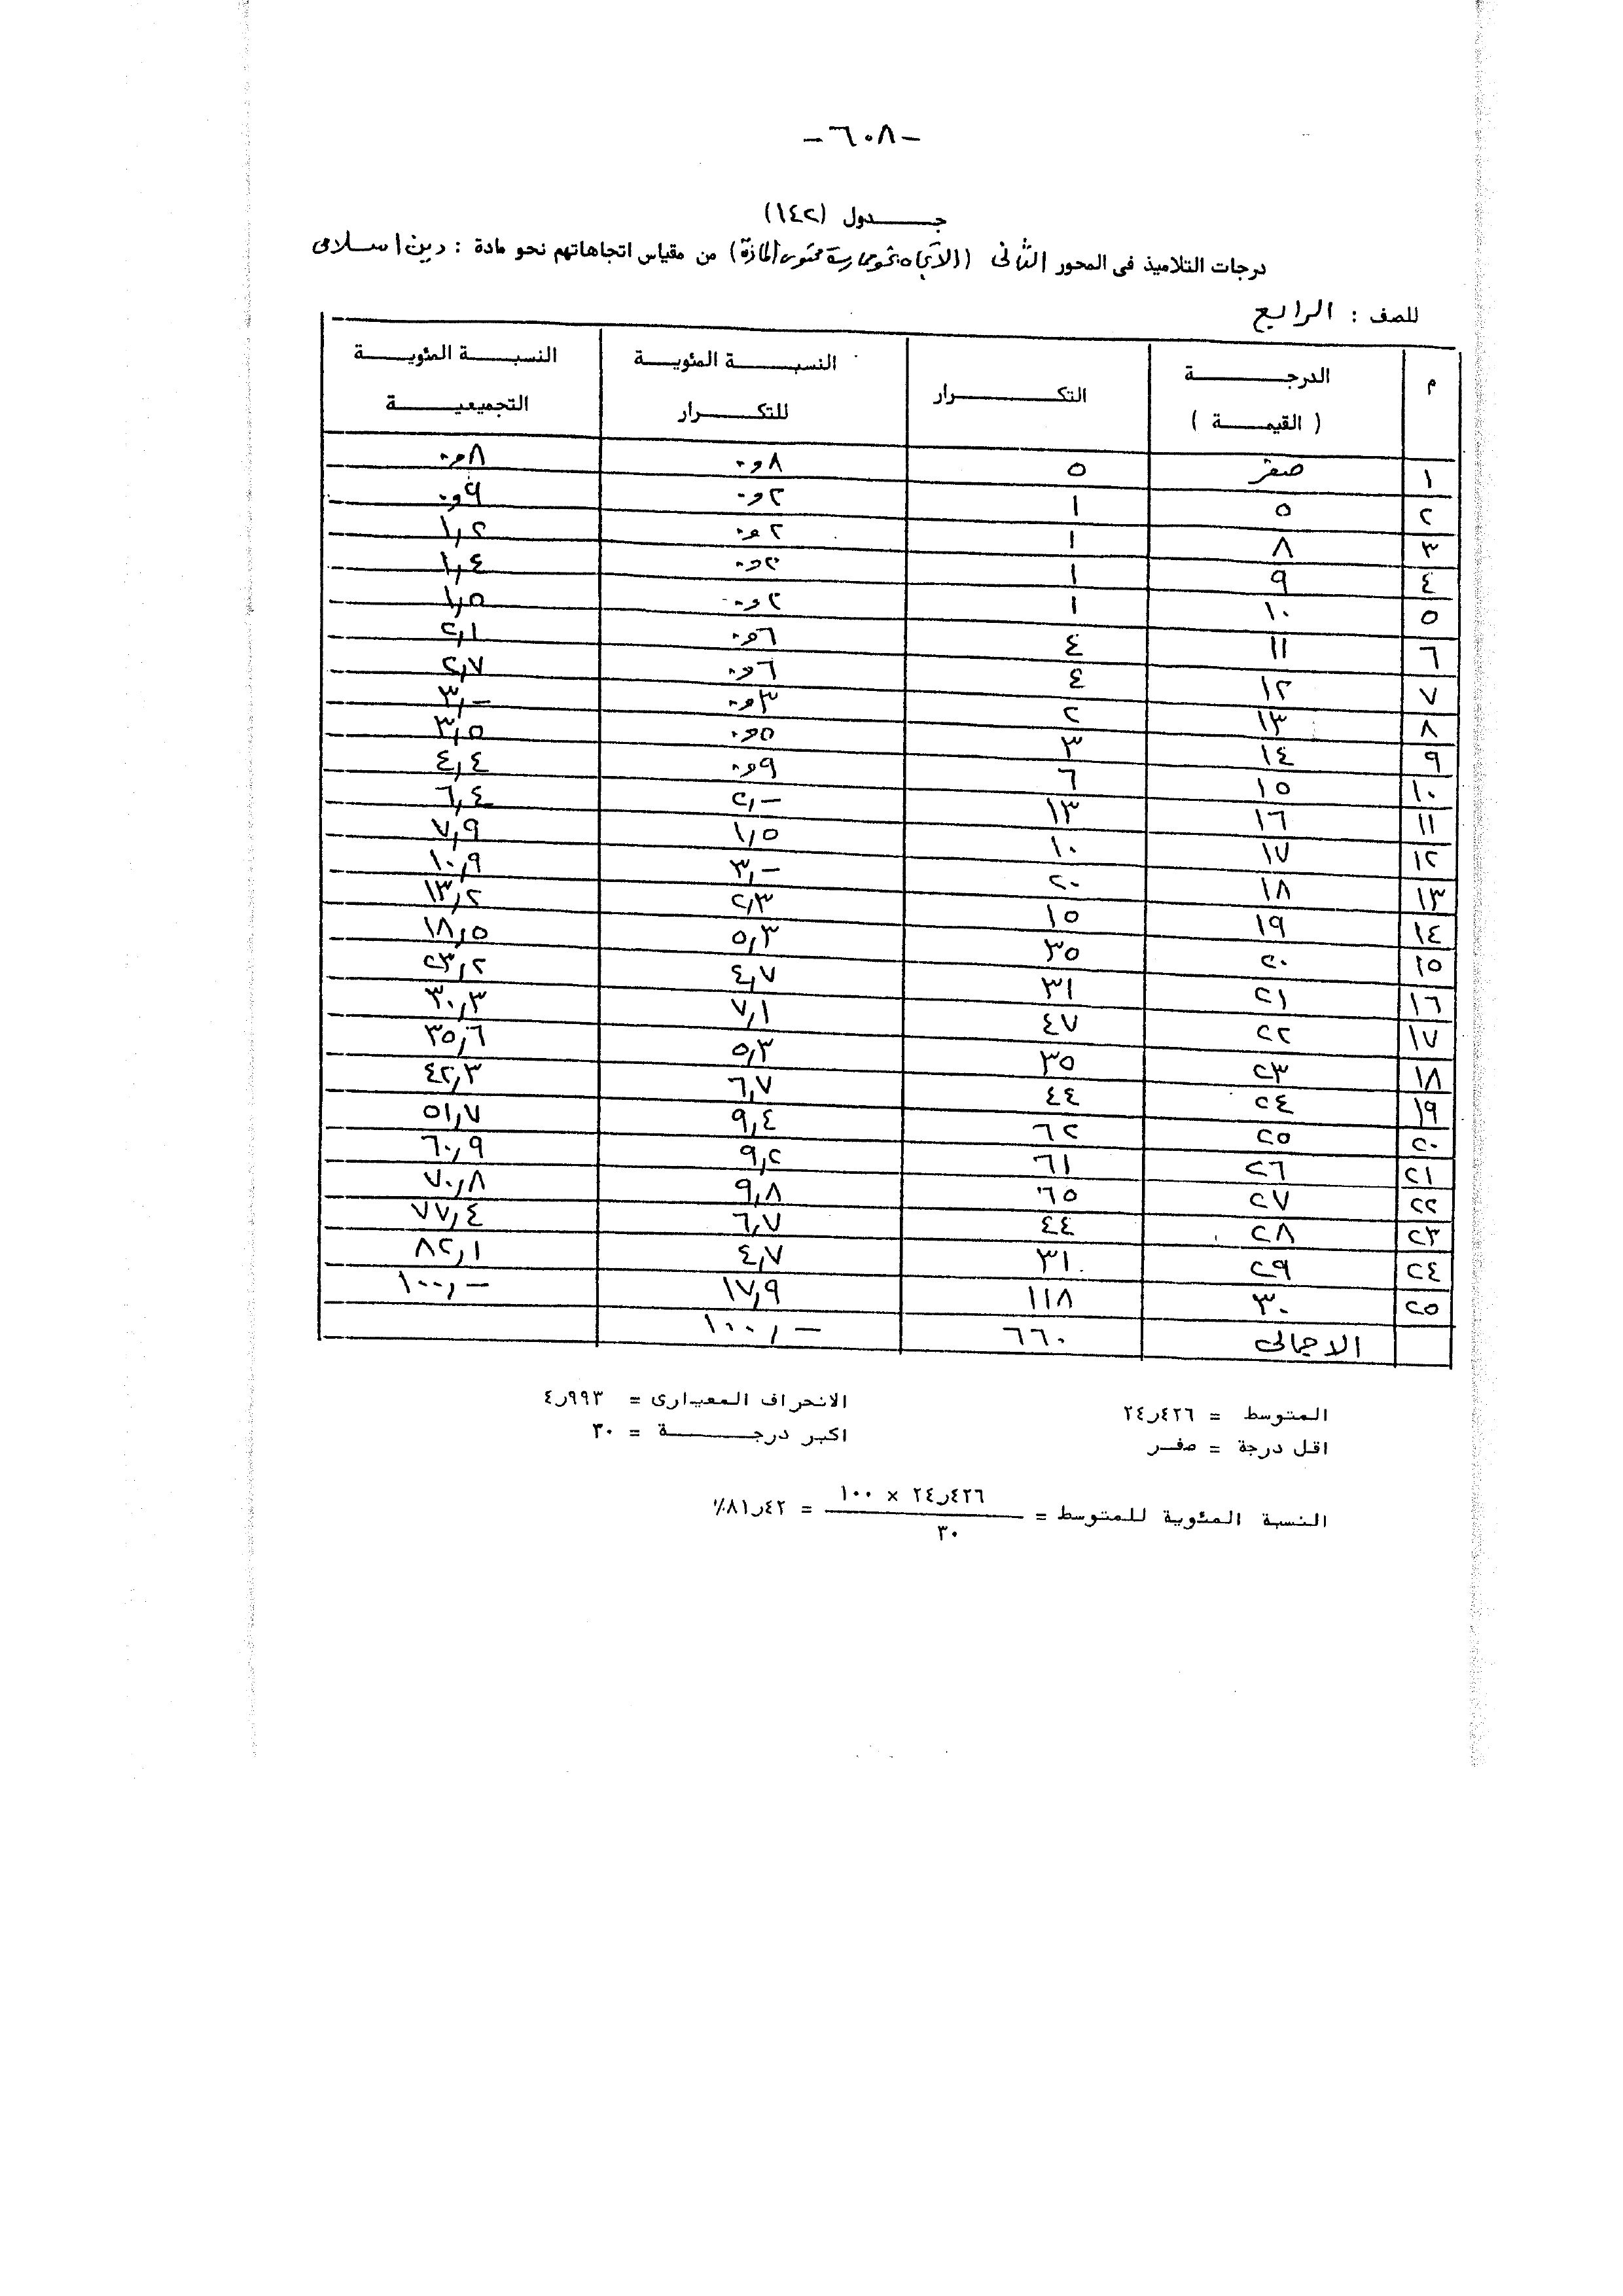 -٦٠٨-
جـــدول (١٤٢)
درجات التلاميذ فى المحور الثانى (الاتجاه نحو ممارسة محتوى المادة) من مقياس اتجاهاتهم نحو مادة : دين اسلامى
للصف : الرابع
م الدرجـــة (القيمـــة) التكـــرار النسبـــة المئويـــة للتكـــرار النسبـــة المئويـــة التجميعيـــة
١ صفر ٥ ٠٫٨ ٠٫٨
٢ ٥ ١ ٠٫٢ ٠٫٩
٣ ٨ ١ ٠٫٢ ١٫٢
٤ ٩ ١ ٠٫٢ ١٫٤
٥ ١٠ ١ ٠٫٢ ١٫٥
٦ ١١ ٤ ٠٫٦ ٢٫١
٧ ١٢ ٤ ٠٫٦ ٢٫٧
٨ ١٣ ٢ ٠٫٣ ٣٫-
٩ ١٤ ٣ ٠٫٥ ٣٫٥
١٠ ١٥ ٦ ٠٫٩ ٤٫٤
١١ ١٦ ١٣ ٢٫- ٦٫٤
١٢ ١٧ ١٠ ١٫٥ ٧٫٩
١٣ ١٨ ٢٠ ٣٫- ١٠٫٩
١٤ ١٩ ١٥ ٢٫٣ ١٣٫٢
١٥ ٢٠ ٣٥ ٥٫٣ ١٨٫٥
١٦ ٢١ ٣١ ٤٫٧ ٢٣٫٢
١٧ ٢٢ ٤٧ ٧٫١ ٣٠٫٣
١٨ ٢٣ ٣٥ ٥٫٣ ٣٥٫٦
١٩ ٢٤ ٤٤ ٦٫٧ ٤٢٫٣
٢٠ ٢٥ ٦٢ ٩٫٤ ٥١٫٧
٢١ ٢٦ ٦١ ٩٫٢ ٦٠٫٩
٢٢ ٢٧ ٦٥ ٩٫٨ ٧٠٫٨
٢٣ ٢٨ ٤٤ ٦٫٧ ٧٧٫٤
٢٤ ٢٩ ٣١ ٤٫٧ ٨٢٫١
٢٥ ٣٠ ١١٨ ١٧٫٩ ١٠٠٫-
الاجمالى ٦٦٠ ١٠٠٫-
المتوسط = ٢٤٫٤٢٦ الانحراف المعيارى = ٤٫٩٩٣
اقل درجة = صفـر اكبر درجـــة = ٣٠
النسبة المئوية للمتوسط = ٢٤٫٤٢٦ × ١٠٠ / ٣٠ = ٨١٫٤٢٪